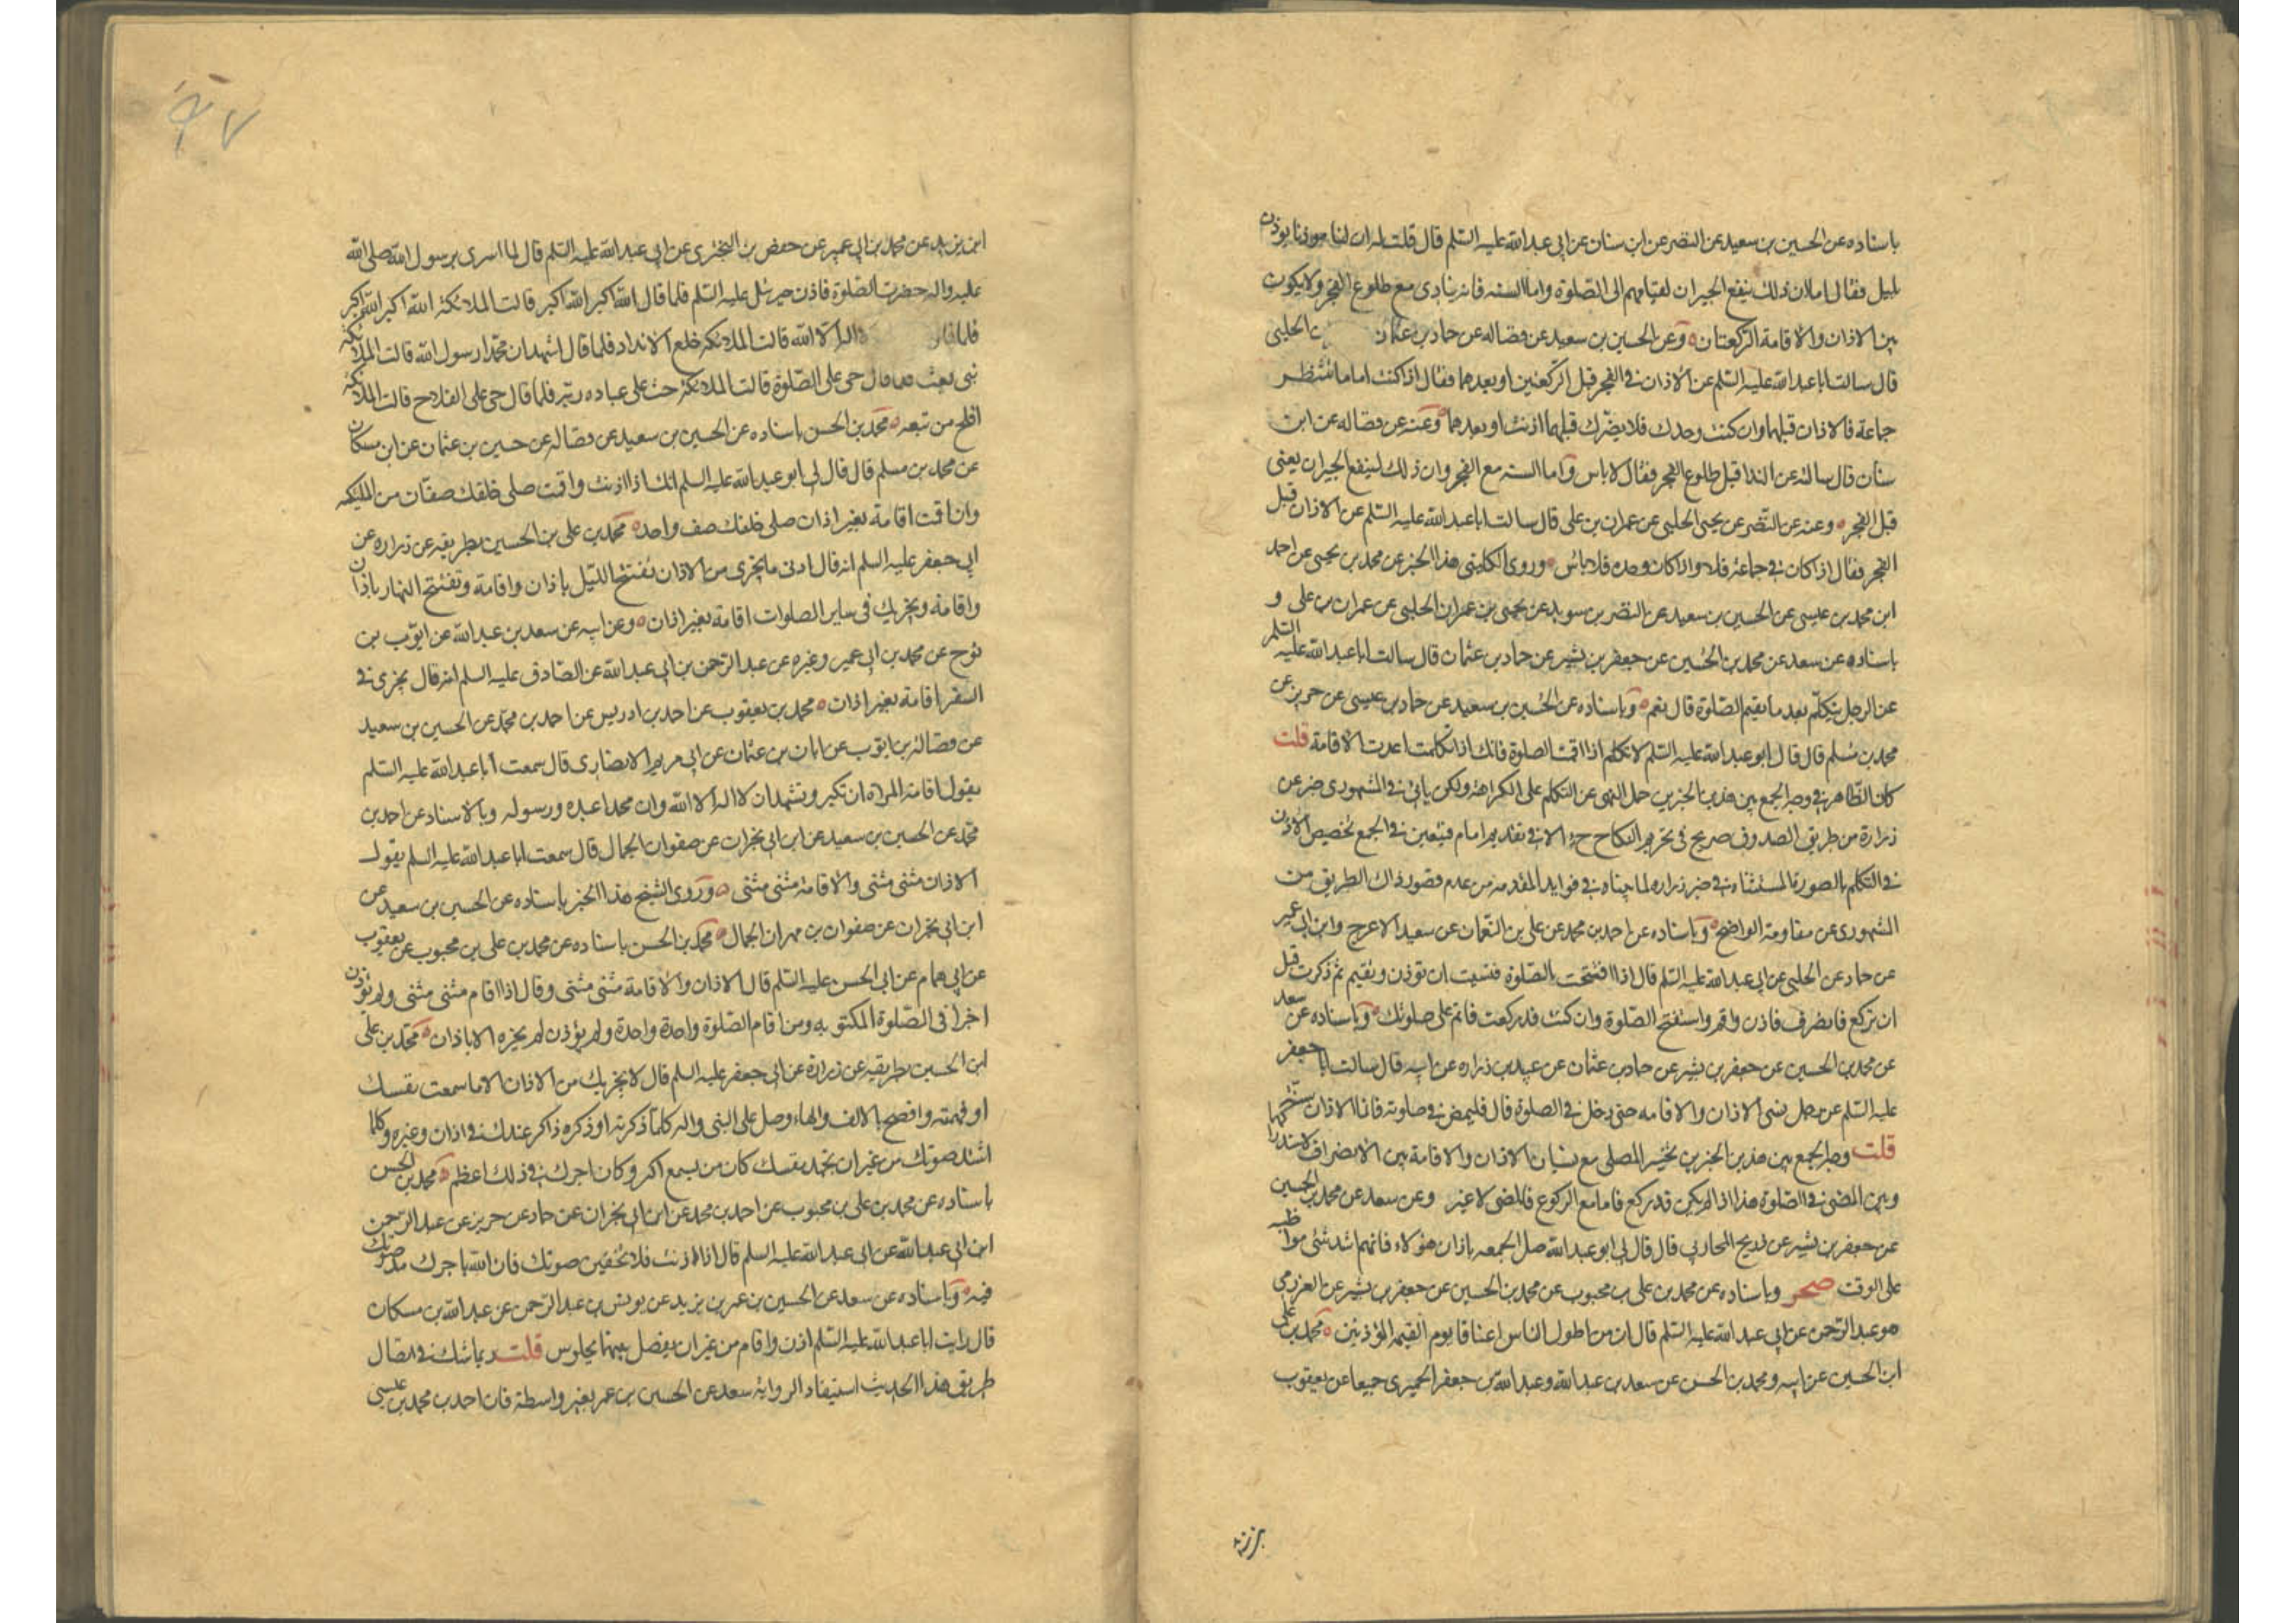 باسناده عن الحسين بن سعيد عن النضر عن ابن سنان عن ابى عبد الله عليه السلم قال قلت له ان لنا موذنا يوذن
بليل فقال اما ان ذلك ينفع الجيران لقيامهم الى الصلوة واما السنه فانه ينادى مع طلوع الفجر ولا يكون
بين الاذان والاقامة الا الركعتان وعن الحسين بن سعيد عن فضاله عن حماد بن عثمان الحلبى
قال سالت ابا عبد الله عليه السلم عن الاذان فى الفجر قبل الركعتين او بعدهما فقال اذا كنت اماما تنتظر
جماعة فالاذان قبلهما وان كنت وحدك فلا يضرك قبلهما اذنت او بعدهما وعنه عن فضاله عن ابن
سنان قال سالته عن الندا قبل طلوع الفجر فقال لا باس واما السنه مع الفجر وان ذلك لينفع الجيران يعنى
قبل الفجر وعنه عن النضر عن يحيى الحلبى عن عمران بن على قال سالت ابا عبد الله عليه السلم عن الاذان قبل
الفجر فقال اذا كان فى جماعة فلا واذا كان وحده فلا باس وروى الكلينى هذا الخبر عن محمد بن يحيى عن احمد
ابن محمد بن عيسى عن الحسين بن سعيد عن النضر بن سويد عن يحيى بن عمران الحلبى عن عمران بن على و
باسناده عن سعد عن محمد بن الحسين عن جعفر بن بشير عن حماد بن عثمان قال سالت ابا عبد الله عليه السلم
عن الرجل يتكلم بعد ما يقيم الصلوة قال نعم وباسناده عن الحسين بن سعيد عن حماد بن عيسى عن حريز عن
محمد بن مسلم قال قال ابو عبد الله عليه السلم لا تتكلم اذا اقمت الصلوة فانك اذا تكلمت اعدت الاقامة قلت
كان الظاهر فى وجه الجمع بين هذين الخبرين حمل النهى عن التكلم على الكراهة ولكن ياتى فى المشهورى خبر عن
زرارة من طريق الصدوق صريح فى تحريم التكلم ح الا فى تقديم امام فيتعين فى الجمع تخصيص الاذن
فى التكلم بالصورة المستثناه فى خبر زراره لما بيناه فى فوايد المقدمه من عدم قصور ذاك الطريق من
المشهورى عن مقاومة الواضح وباسناده عن احمد بن محمد عن على بن النعمان عن سعيد الاعرج وابن ابى عمير
عن حماد عن الحلبى عن ابى عبد الله عليه السلم قال اذا افتتحت الصلوة فنسيت ان توذن وتقيم ثم ذكرت قبل
ان تركع فانصرف فاذن واقم واستفتح الصلوة وان كنت قد ركعت فاتم على صلوتك وباسناده عن سعد
عن محمد بن الحسين عن جعفر بن بشير عن حماد بن عثمان عن عبيد بن زراره عن ابيه قال سالت ابا جعفر
عليه السلم عن رجل نسى الاذان والاقامه حتى دخل فى الصلوة قال فليمض فى صلوته فانما الاذان سنة
قلت وجه الجمع بين هذين الخبرين تخيير المصلى مع نسيان الاذان والاقامة بين الانصراف
وبين المضى فى الصلوة هذا اذا لم يكن قد ركع فاما مع الركوع فالمضى لا غير وعن سعد عن محمد بن الحسين
عن جعفر بن بشير عن ذريح المحاربى قال قال لى ابو عبد الله صل الجمعه باذان هؤلاء فانهم اشد شئى مواظبه
على الوقت صحر وباسناده عن محمد بن على بن محبوب عن محمد بن الحسين عن جعفر بن بشير عن العزرمى
هو عبد الرحمن عن ابى عبد الله عليه السلم قال ان من اطول الناس اعناقا يوم القيمه المؤذنين محمد بن على
ابن الحسين عن ابيه ومحمد بن الحسن عن سعد بن عبد الله وعبد الله بن جعفر الحميرى جميعا عن يعقوب
٩٧
ابن يزيد عن محمد بن ابى عمير عن حفص بن البخترى عن ابى عبد الله عليه السلم قال لما اسرى برسول الله صلى الله
عليه واله حضرت الصلوة فاذن جبرئيل عليه السلم فلما قال الله اكبر الله اكبر قالت الملائكة الله اكبر الله اكبر
فلما الا الله قالت الملائكه خلع الانداد فلما قال اشهد ان محمدا رسول الله قالت الملائكة
نبى بعث فلما قال حى على الصلوة قالت الملائكة حث على عباده ربه فلما قال حى على الفلاح قالت الملائكة
افلح من تبعه محمد بن الحسن باسناده عن الحسين بن سعيد عن فضاله عن حسين بن عثمان عن ابن مسكان
عن محمد بن مسلم قال قال لى ابو عبد الله عليه السلم انك اذا اذنت واقمت صلى خلفك صفان من المليكه
وان اقمت اقامة بغير اذان صلى خلفك صف واحد محمد بن على بن الحسين بطريقيه عن زراره عن
ابى جعفر عليه السلم انه قال ادنى ما يجزى من الاذان تفتتح الليل باذان واقامة وتفتتح النهار باذان
واقامة ويجزيك فى ساير الصلوات اقامة بغير اذان وعن ابيه عن سعد بن عبد الله عن ايوب بن
نوح عن محمد بن ابى عمير وغيره عن عبد الرحمن بن ابى عبد الله عن الصادق عليه السلم انه قال يجزى فى
السفر اقامة بغير اذان محمد بن يعقوب عن احمد بن ادريس عن احمد بن محمد عن الحسين بن سعيد
عن فضالة بن ايوب عن ابان بن عثمان عن ابى مريم الانصارى قال سمعت ابا عبد الله عليه السلم
يقول اقامة المراة ان تكبر وتشهد ان لا اله الا الله وان محمدا عبده ورسوله وبالاسناد عن احمد بن
محمد عن الحسين بن سعيد عن ابن ابى نجران عن صفوان الجمال قال سمعت ابا عبد الله عليه السلم يقول
الاذان مثنى مثنى والاقامة مثنى مثنى وروى الشيخ هذا الخبر باسناده عن الحسين بن سعيد عن
ابن ابى نجران عن صفوان بن مهران الجمال محمد بن الحسن باسناده عن محمد بن على بن محبوب عن يعقوب
عن ابى همام عن ابى الحسن عليه السلم قال الاذان والاقامة مثنى مثنى وقال اذا اقام مثنى مثنى ولم يؤذن
اجزا فى الصلوة المكتوبه ومن اقام الصلوة واحدة واحدة ولم يؤذن لم يجزه الا باذان محمد بن على
ابن الحسين بطريقيه عن زرارة عن ابى جعفر عليه السلم قال لا يجزيك من الاذان الا ما سمعت نفسك
او فهمته وافصح بالالف والهاء وصل على النبى واله كلما ذكرته او ذكره ذاكر عندك فى اذان وغيره وكلما
اشتد صوتك من غير ان تجهد نفسك كان من يسمع اكثر وكان اجرك فى ذلك اعظم محمد بن الحسن
باسناده عن محمد بن على بن محبوب عن احمد بن محمد عن ابن ابى نجران عن حماد عن حريز عن عبد الرحمن
ابن ابى عبد الله عن ابى عبد الله عليه السلم قال اذا اذنت فلا تخفين صوتك فان الله ياجرك مد صوتك
فيه وباسناده عن سعد عن الحسين بن عمر بن يزيد عن يونس بن عبد الرحمن عن عبد الله بن مسكان
قال رايت ابا عبد الله عليه السلم اذن واقام من غير ان يفصل بينهما بجلوس قلت ربما شك فى اتصال
طريق هذا الحديث استبعاد الرواية سعد عن الحسين بن عمر بغير واسطة فان احمد بن محمد بن عيسى